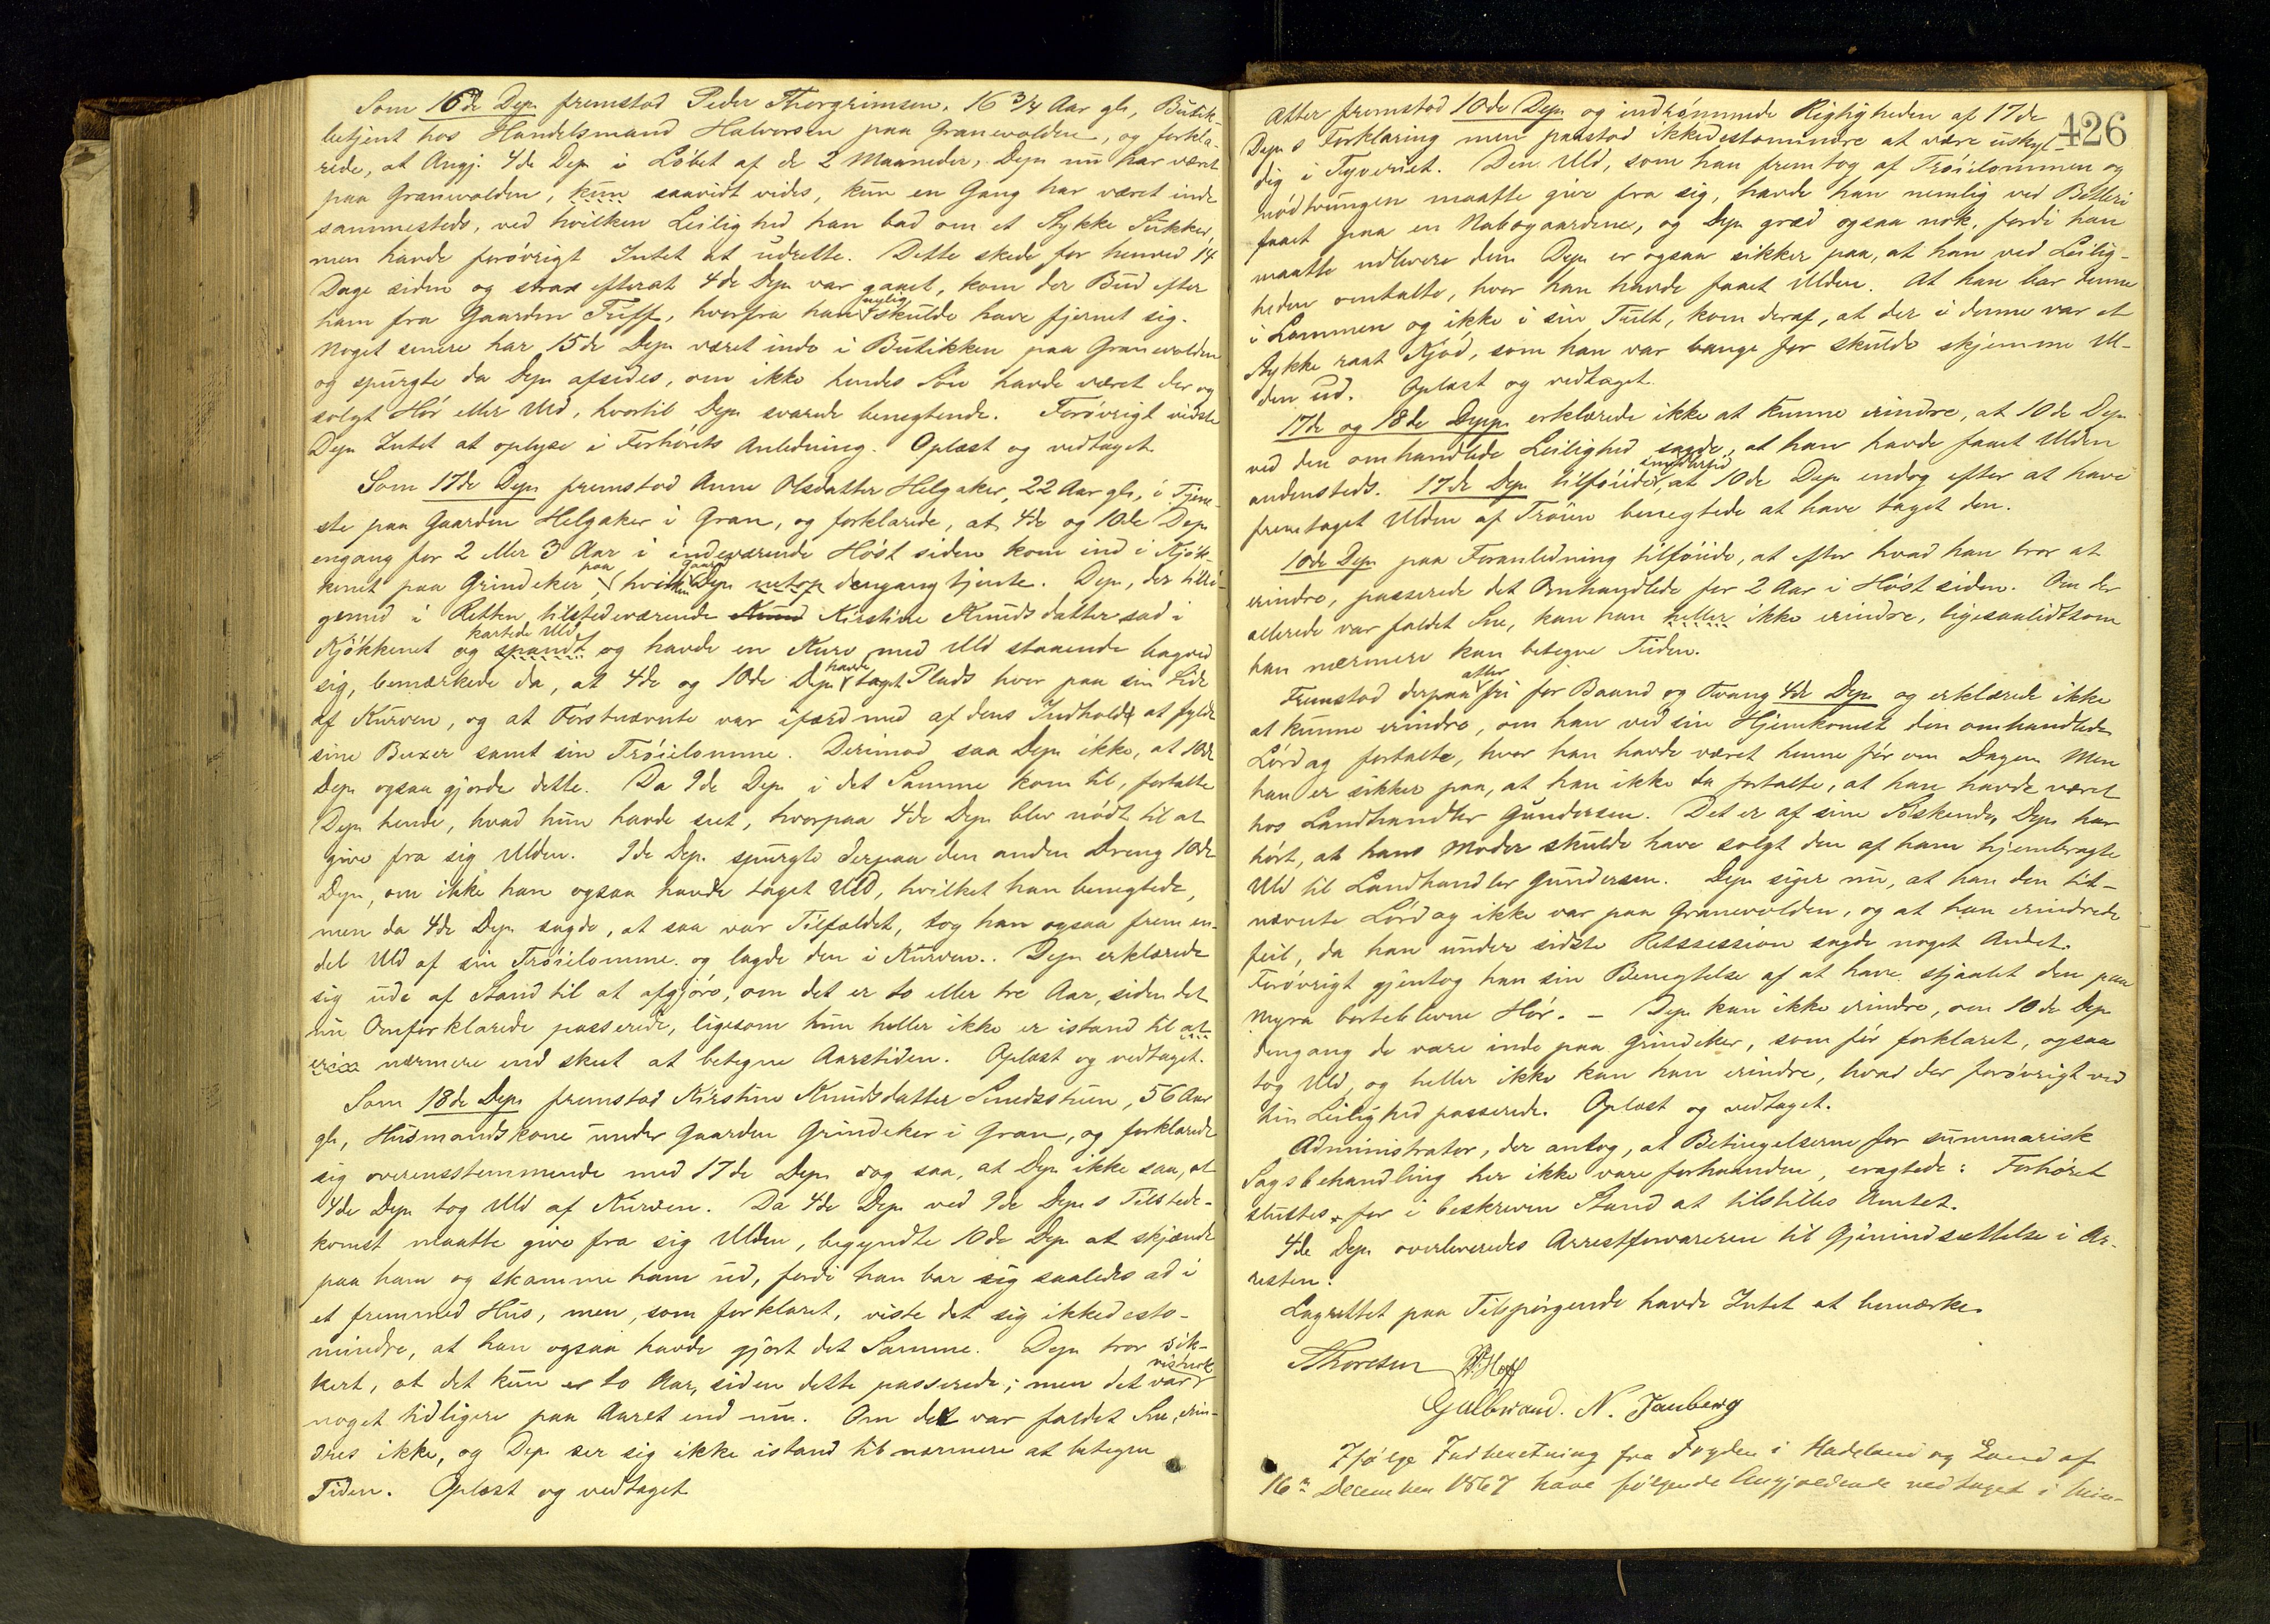 Som 16de Dep. fremstod Peder Thorgrimsen, 16 3/4 Aar gl., Butik-
betjent hos Handelsmand Halvorsen paa Granevolden, og forkla-
rede, at Angj. 4de Dep. i Løbet af de 2 Maaneder, Dep. nu har været
paa Granevolden, kun saavidt vides, kun en Gang har været inde
sammesteds, ved hvilken Leilighed han bad om et Stykke Sukker,
men havde forøvrigt Intet at udrette. Dette skede for henved 14
Dage siden og strax efterat 4de Dep. var gaaet, kom der Bud efter
ham fra Gaarden Tuff, hvorfra han nylig skulde have fjernet sig.
Noget senere har 15de Dep. været inde i Butikken paa Granevolden
og spurgte da Dep. afsides, om ikke hendes Søn havde været der og
solgt Hør eller Uld, hvortil Dep. svarede benegtende. Forøvrigt vidste
Dep. Intet at oplyse i Forhørets Anledning. Oplæst og vedtaget.
Som 17de Dep. fremstod Anne Olsdatter Helgaker, 22 Aar gl., i Tjene-
ste paa Gaarden Helgaker i Gran, og forklarede, at 4de og 10de Dep.
engang for 2 eller 3 Aar i indeværende Høst siden kom ind i Kjøk-
kenet paa Grindeker, paa hvilken Gaard Dep. netop dengang tjente. Dep., der tilli-
gemed i Retten tilstedeværende Knud Kirstine Knudsdatter sad i
Kjøkkenet og spandt kartede Uld og havde en Kurv med Uld staaende bagved
sig, bemærkede da, at 4de og 10de Dep. havde taget Plads hver paa sin Side
af Kurven, og at Førstnævnte var ifærd med af dens Indhold at fylde
sine Buxer samt sin Trøielomme. Derimod saa Dep. ikke, at 10de
Dep. ogsaa gjorde dette. Da 9de Dep. i det Samme kom til, fortalte
Dep. hende, hvad hun havde seet, hvorpaa 4de Dep. blev nødt til at
give fra sig Ulden. 9de Dep. spurgte derpaa den anden Dreng 10de
Dep., om ikke han ogsaa havde taget Uld, hvilket han benegtede,
men da 4de Dep. sagde, at saa var Tilfældet, tog han ogsaa frem en-
del Uld af sin Trøielomme og lagde den i Kurven. Dep. erklærede
sig ude af Stand til at afgjøre, om det er to eller tre Aar, siden det
nu Omforklarede passerede, ligesom hun heller ikke er istand til at
nærmere end skeet at betegne Aarstiden. Oplæst og vedtaget.
Som 18de Dep. fremstod Kirstine Knudsdatter Smedsstuen, 56 Aar
gl., Husmandskone under Gaarden Grindeker i Gran, og forklarede
sig overensstemmende med 17de Dep. dog saa, at Dep. ikke saa, at
4de Dep. tog Uld af Kurven. Da 4de Dep. ved 9de Dep.s Tilstede-
komst maatte give fra sig Ulden, begyndte 10de Dep. at skjænde
paa ham og skamme ham ud, fordi han bar sig saaledes ad i
et fremmed Hus, men, som forklaret, viste det sig ikkedesto-
mindre, at han ogsaa havde gjort det Samme. Dep. tror sik-
kert, at det kun er to Aar, siden dette passerede; men det var vistnok
noget tidligere paa Aaret end nu. Om det var faldet Sne, erin-
dres ikke, og Dep. ser sig ikke istand til nærmere at betegne
Tiden. Oplæst og vedtaget
426
Atter fremstod 10de Dep. og indrømmede Rigtigheden af 17de
Dep.s Forklaring men paastod ikkedestomindre at være uskyl-
dig i Tyveriet. Den Uld, som han fremtog af Trøielommen og
nødtvungen maatte give fra sig, havde han nemlig ved Betleri
faaet paa en Nabogaardene, og Dep. græd ogsaa nok, fordi han
maatte udlevere den. Dep. er ogsaa sikker paa, at han ved Leilig-
heden omtalte, hvor han havde faaet Ulden. At han bar denne
i Lommen og ikke i sin Tult, kom deraf, at der i denne var et
Stykke raat Kjød, som han var bange for skulde skjemme Ul-
den ud. Oplæst og vedtaget.
17de og 18de Depp. erklærede ikke at kunne erindre, at 10de Dep.
ved den omhandlede Leilighed sagde, at han havde faaet Ulden
andensteds. 17de Dep. tilføiede imidlertid, at 10de Dep. endog efter at have
fremtaget Ulden af Trøien benegtede at have taget den.
10de Dep. paa Foranledning tilføiede, at efter hvad han tror at
erindre, passerede det Omhandlede for 2 Aar i Høst siden. Om der
allerede var faldet Sne, kan han heller ikke erindre, ligesaalidtsom
han nærmere kan betegne Tiden.
Fremstod derpaa atter fri for Baand og Tvang 4de Dep. og erklærede ikke
at kunne erindre, om han ved sin Hjemkomst den omhandlede
Lørdag fortalte, hvor han havde været henne før om Dagen. Men
han er sikker paa, at han ikke da fortalte, at han havde været
hos Landhandler Gundersen. Det er af sine Søskende, Dep. har
hørt, at hans Moder skulde have solgt den af ham hjembragte
Uld til Landhandler Gundersen. Dep. siger nu, at han den tit-
nævnte Lørdag ikke var paa Granevolden, og at han erindrede
feil, da han under sidste Retssession sagde noget Andet.
Forøvrigt gjentog han sin Benegtelse af at have stjaalet den paa
Myra borteblevne Hør. – Dep. kan ikke erindre, om 10de Dep.
dengang de vare inde paa Grindeker, som før forklaret, ogsaa
tog Uld, og heller ikke kan han erindre, hvad der forøvrigt ved
hin Leilighed passerede. Oplæst og vedtaget.
Administrator, der antog, at Betingelserne for summarisk
Sagsbehandling her ikke vare forhaanden, eragtede: Forhøret
sluttes, for i beskreven Stand at tilstilles Amtet.
4de Dep. overleveredes Arrestforvareren til Gjenindsættelse i Ar-
resten.
Lagrettet paa Tilspørgende havde Intet at bemærke.
Thoresen Hoff
Gulbrand. N. Jauberg
Ifølge Indberetning fra Fogden i Hadeland og Land af
16de December 1867 have følgende Angjældende vedtaget i Min-